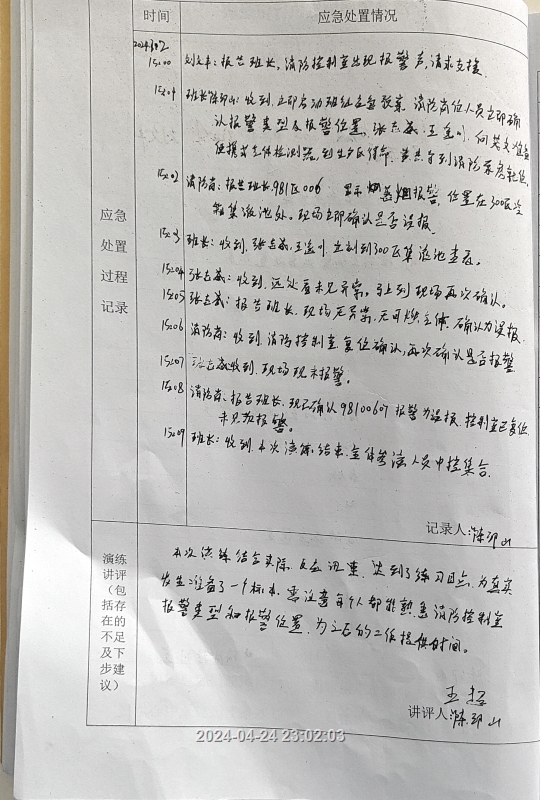 时间 应急处置情况
2024.3.02
15:00 刘文丰:报告班长,消防控制室出现报警声,请求支援
15:01 班长陈邱山:收到,立即启动班组应急预案,消防岗位人员立即确
认报警类型及报警位置,张志斌、王金川、何
便携式气体检测器,到生产区待命,到消防泵房就位。
15:02 消防岗:报告班长,981区006 显示烟报警,位置在300区
集液池处。现场立即确认是否误报
15:03 班长:收到,张志斌、王金川,立刻到300区集液池查看。
15:04 张志斌:收到,远处看未见异常。马上到现场再次确认。
15:05 张志斌:报告班长,现场无异常,无可燃气体,确认为误报
15:06 消防岗:收到,消防控制室复位确认,再次确认是否报警
15:07 张志斌:收到,现场现未报警。
15:08 消防岗:报告班长,现已确认98100607报警为误报,控制室已复位
未见报警。
15:09 班长:收到,本次演练结束,全体参演人员中控集合
应急
处置
过程
记录
记录人:陈邱山
演练
讲评
(包
括存
在的
不足
及下
步建
议)
本次演练结合实际,反应迅速,达到了练习目的,为真实
发生准备了一个标本,需注意每个人都能熟悉消防控制室
报警类型和报警位置,为之后的工作提供时间。
王超
讲评人:陈邱山
2024-04-24 23:02:03